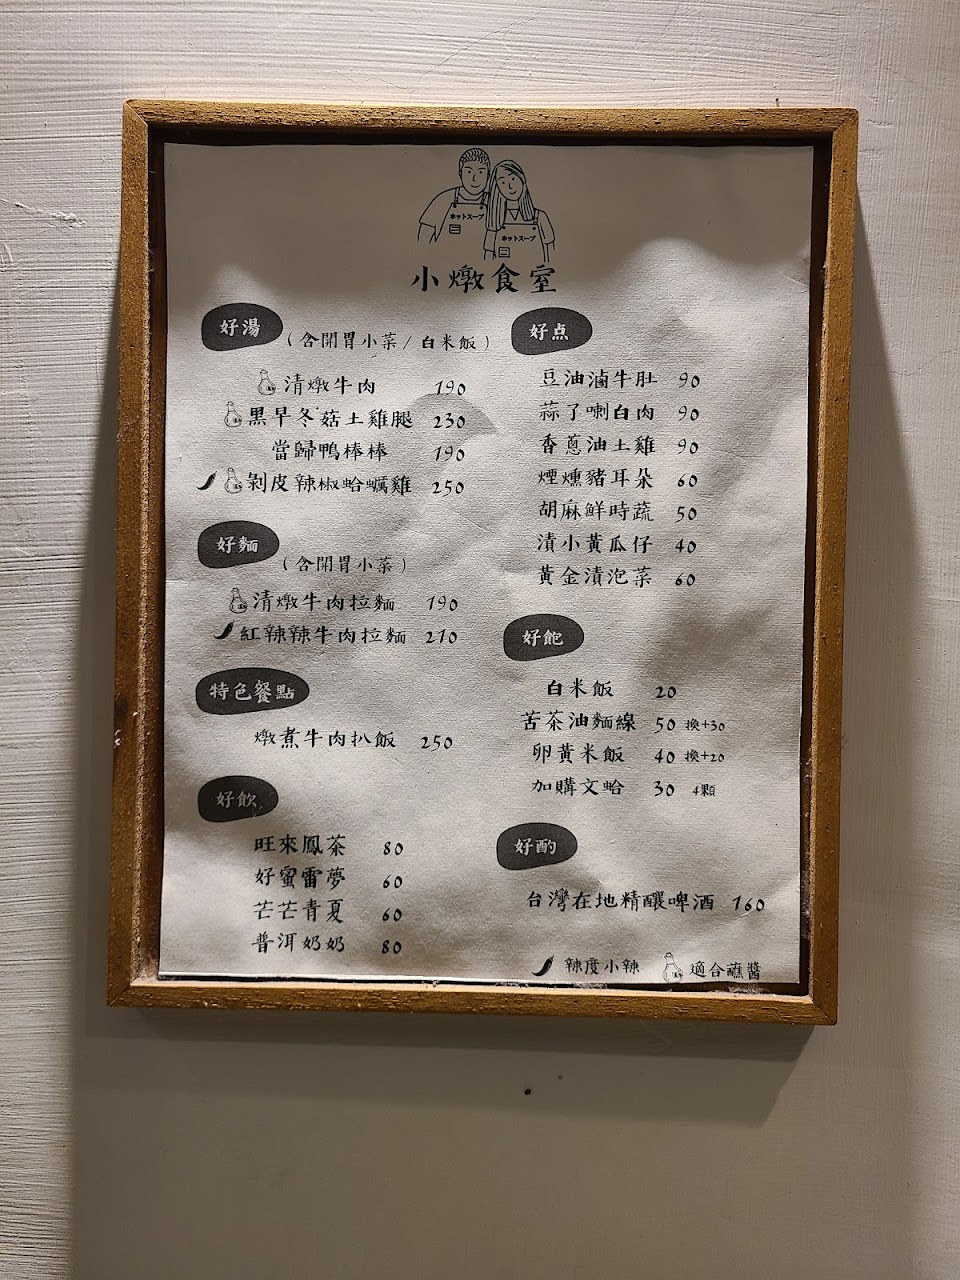 ホットスープ
ホットスープ
小燉食室
好湯 (含開胃小菜/白米飯)
清燉牛肉 190
黑早冬菇土雞腿 230
當歸鴨棒棒 190
剝皮辣椒蛤蠣雞 250
好麵 (含開胃小菜)
清燉牛肉拉麵 190
紅辣辣牛肉拉麵 210
特色餐點
燉煮牛肉扒飯 250
好飲
旺來鳳茶 80
好蜜雷夢 60
芒芒青夏 60
普洱奶奶 80
好点
豆油滷牛肚 90
蒜了喇白肉 90
香蔥油土雞 90
煙燻豬耳朵 60
胡麻鮮時蔬 50
漬小黃瓜仔 40
黃金漬泡菜 60
好飽
白米飯 20
苦茶油麵線 50 換+30
卵黃米飯 40 換+20
加購文蛤 30 4顆
好酌
台灣在地精釀啤酒 160
辣度小辣 適合蘸醬